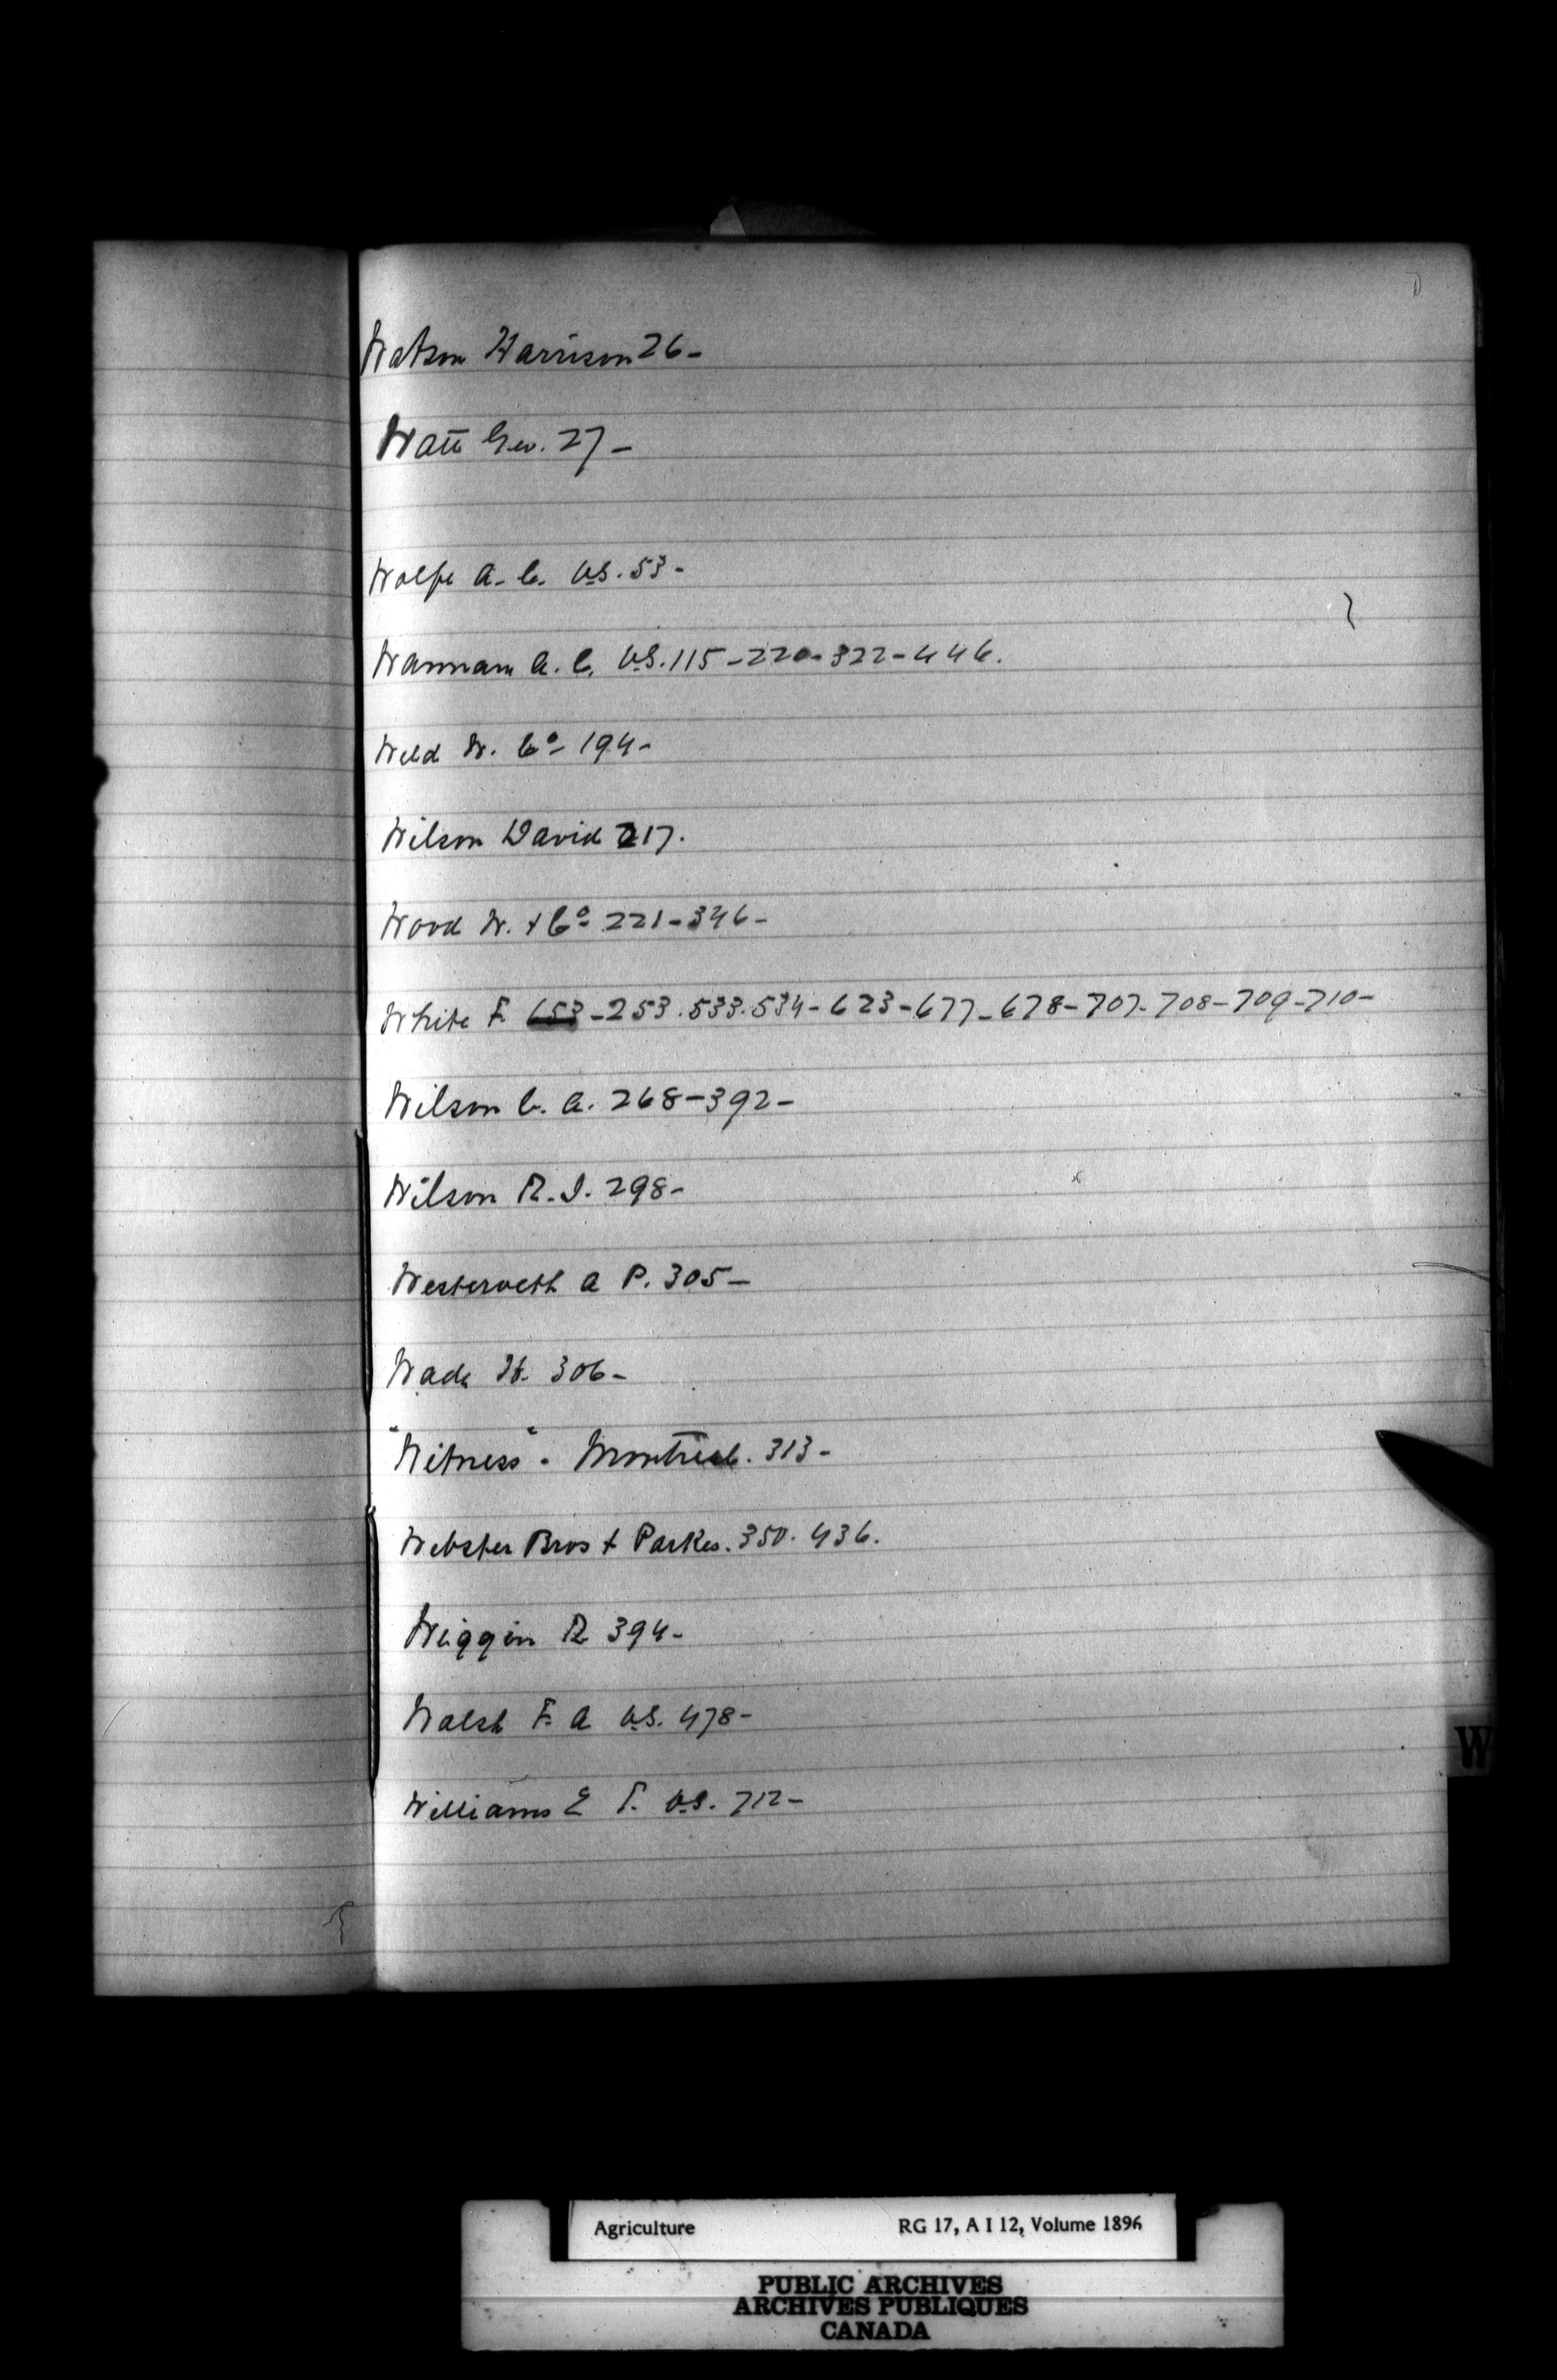 Watson Harrison 26-
Watt Geo. 27-
Wolfe A. C. V.S. 53-
Warnman A. C. V.S. 115-220-322-446.
Weld W. Co- 194-
Wilson David 217.
Wood W. + Co 221-346-
White F. 653-253.533.534-623-677-678-707-708-709-710-
Wilson C. A. 268-392-
Wilson R. J. 298-
Westerveth A P. 305-
Wade H. 306-
"Witness" - Montreal. 313-
Webster Bros + Parkes. 350. 436.
Wiggin R 394-
Walsh F. A V.S. 478-
Williams E T. V.S. 712-
W
Agriculture RG 17, A I 12, Volume 1896
PUBLIC ARCHIVES
ARCHIVES PUBLIQUES
CANADA